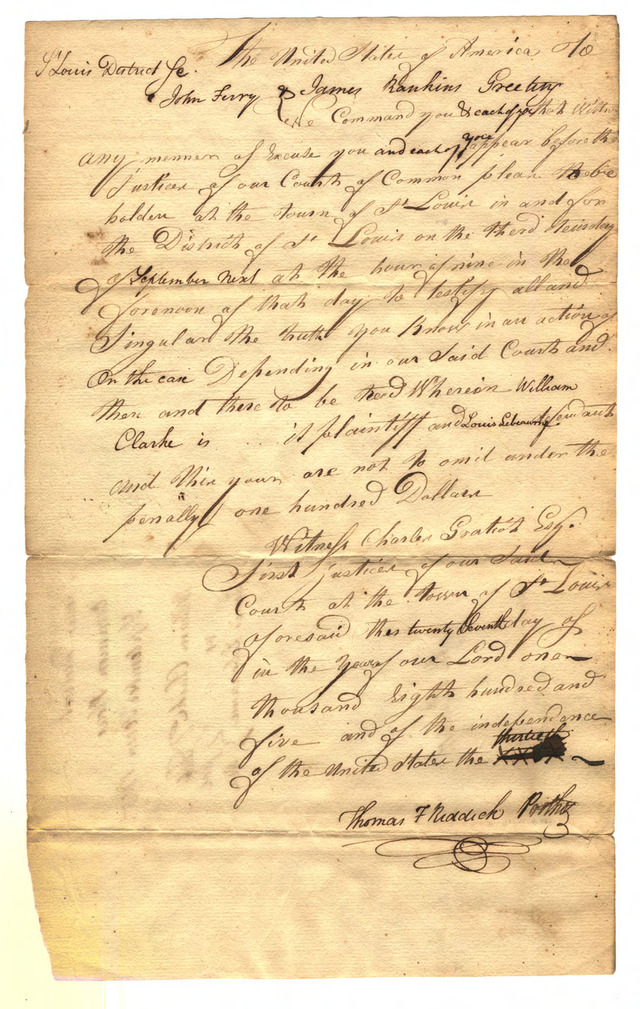 St Louis District Sc. The United States of America To
John Ferry & James Rankins Greeting
We Command you & each of you that Without
any manner of Excuse you and each of you appear before the
Justices of our Court of Common pleas to be
holden at the town of St Louis in and for
the District of St Louis on the therd Teusday
of September Next at the hour of nine in the
forenoon of that day to testify all and
Singular the truth you Know in an action of
On the case Depending in our Said Court and
then and there to be tried Wherein William
Clarke is ... is plaintiff and Louis defendant
and this you are not to omit under the
penalty of one hundred Dollars
Witness Charles Gratiot Esqr.
First justice of our Said
Court at the town of St Louis
aforesaid this twenty Seventh day of
in the Year of our Lord one
thousand Eight hundred and
five and of the independence
of the United States the thirtieth
Thomas F Riddick Prothy